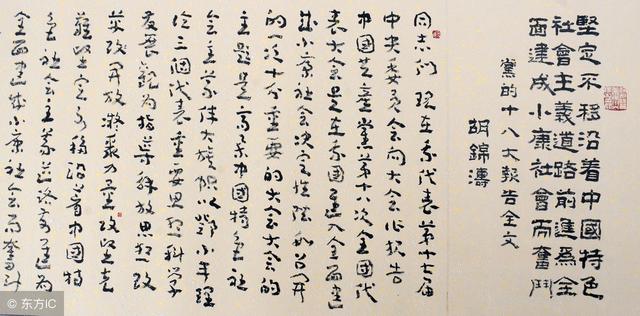 堅定不移沿着中國特色
社會主義道路前進爲全
面建成小康社會而奮鬥
黨的十八大報告全文
胡錦濤
同志们现在我代表第十七届
中央委员会向大会作报告
中國共產黨第十八次全國代
表大会是在我國進入全面建
成小康社会决定性階段召开
的一次十分重要的大会大会的
主题是高举中國特色社
会主義伟大旗帜以邓小平理
论三個代表重要思想科学
发展觀为指导解放思想改
革开放凝聚力量攻坚克
難坚定不移沿着中國特
色社会主義道路前進为
全面建成小康社会而奮斗
© 东方IC